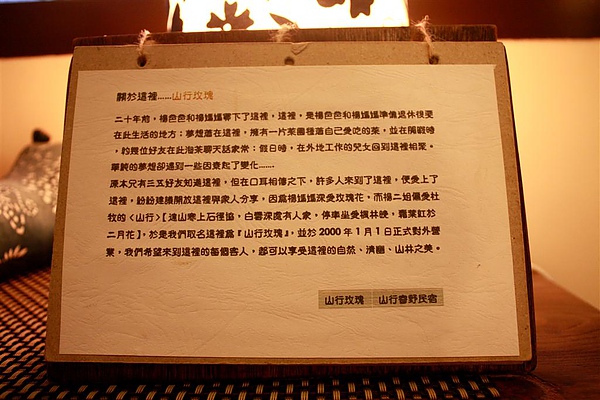 關於這裡……山行玫瑰
二十年前，楊爸爸和楊媽媽尋下了這裡，這裡，是楊爸爸和楊媽媽準備退休後要
在此生活的地方；夢想著在這裡，擁有一片菜園種著自己愛吃的菜，並在閒暇時
，約幾位好友在此泡茶聊天話家常；假日時，在外地工作的兒女回到這裡相聚。
單純的夢想卻遇到一些因素起了變化……
原本只有三五好友知道這裡，但在口耳相傳之下，許多人來到了這裡，便愛上了
這裡，紛紛建議開放這裡與眾人分享，因為楊媽媽深愛玫瑰花，而楊二姐偏愛杜
牧的〈山行〉[遠山寒上石徑協，白雲深處有人家，停車坐愛楓林晚，霜葉紅於
二月花]，於是我們取名這裡為『山行玫瑰』，並於 2000 年 1 月 1 日正式對外營
業，我們希望來到這裡的每個客人，都可以享受這裡的自然、清幽、山林之美。
山行玫瑰 山行春野民宿